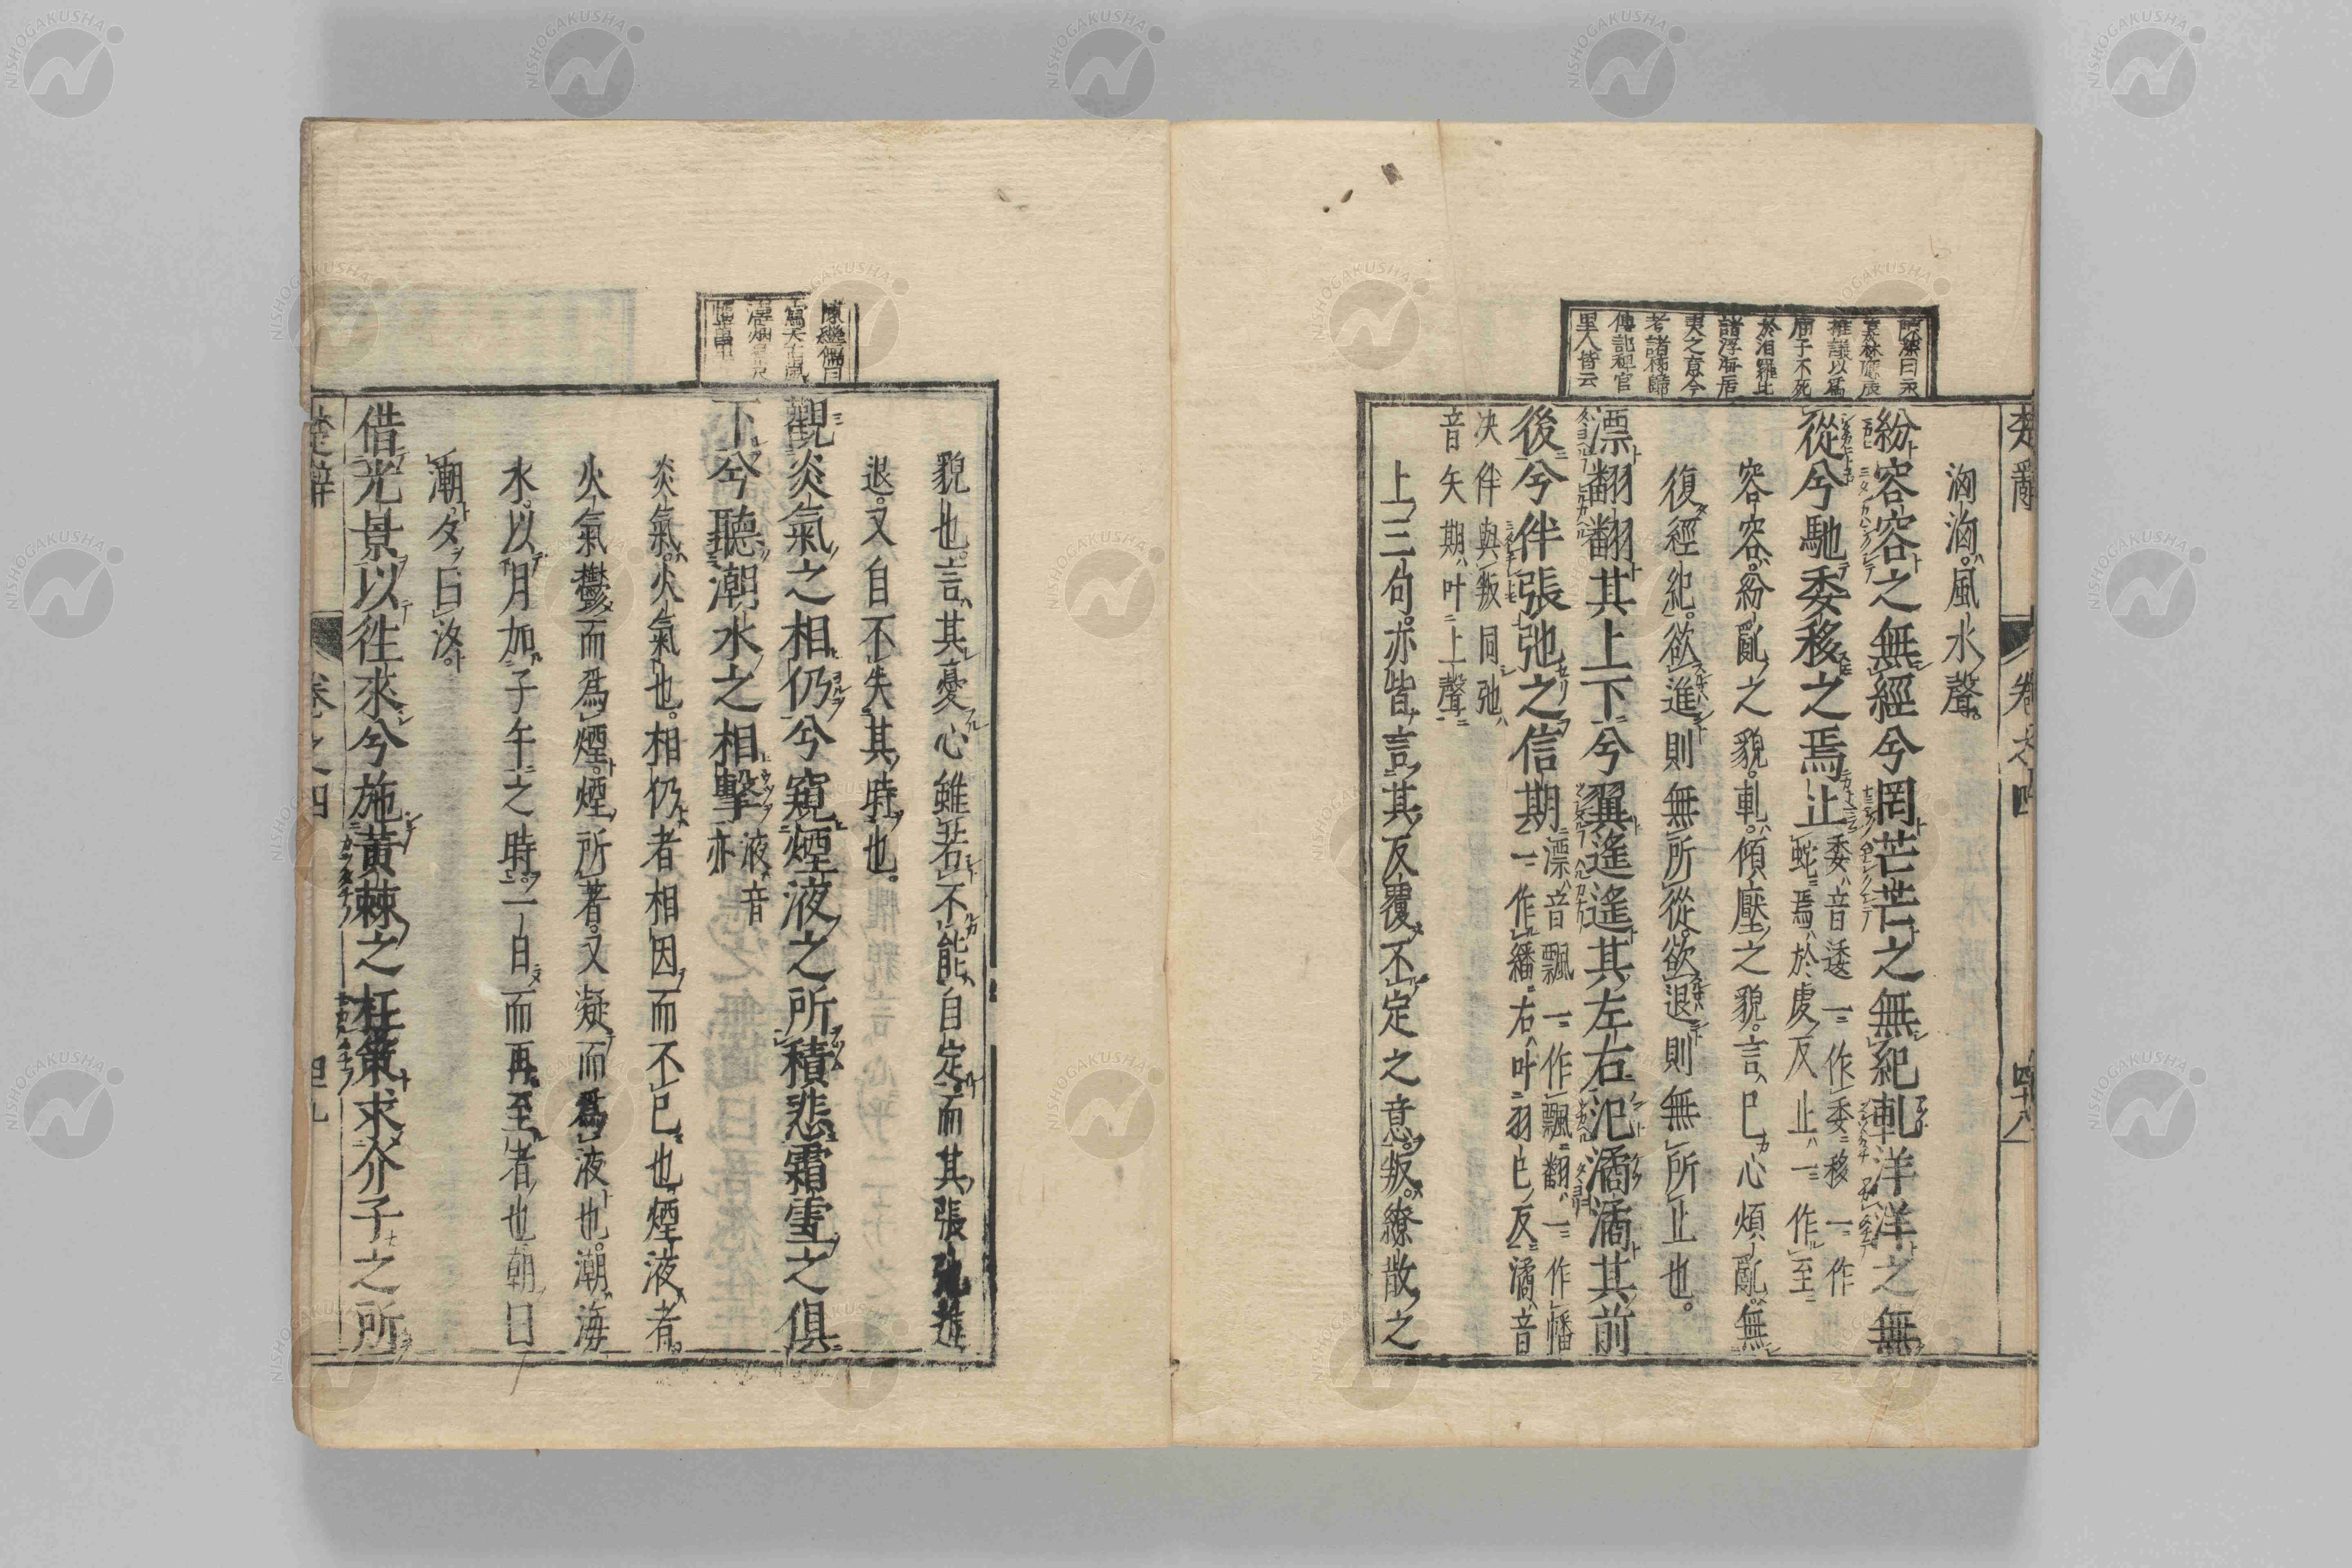 楚辭 卷之四 四十八
洶洶風水聲
紛容容之無經兮罔芒芒之無紀軋洋洋之無
從兮馳委移之焉止委音逶一作委移一作
蛇焉於虔反止一作至
容容紛亂之貌軋傾壓之貌言己心煩亂無
復經紀欲進則無所從欲退則無所止也
漂翻翻其上下兮翼遙遙其左右氾潏潏其前
後兮伴張弛之信期漂音飄一作飄翻一作幡
一作繙右叶羽已反潏音
決伴與叛同弛
音矢期叶上聲
上三句亦皆言其反覆不定之意叛繚散之
於汨羅比
諸浮海居
夷之意今
考諸秭歸
傳記稗官
里人皆云
貌也言其憂心雖若不能自定而其張弛進
退又自不失其時也
觀炎氣之相仍兮窺煙液之所積悲霜雪之俱
下兮聽潮水之相擊液音
亦
炎氣火氣也相仍者相因而不已也煙液者
火氣鬱而爲煙煙所著又凝而爲液也潮海
水以月加子午之時一日而再至者也朝曰
潮夕曰汐
借光景以往來兮施黃棘之枉策求介子之所
楚辭 卷之四
NISHOGAKUSHA